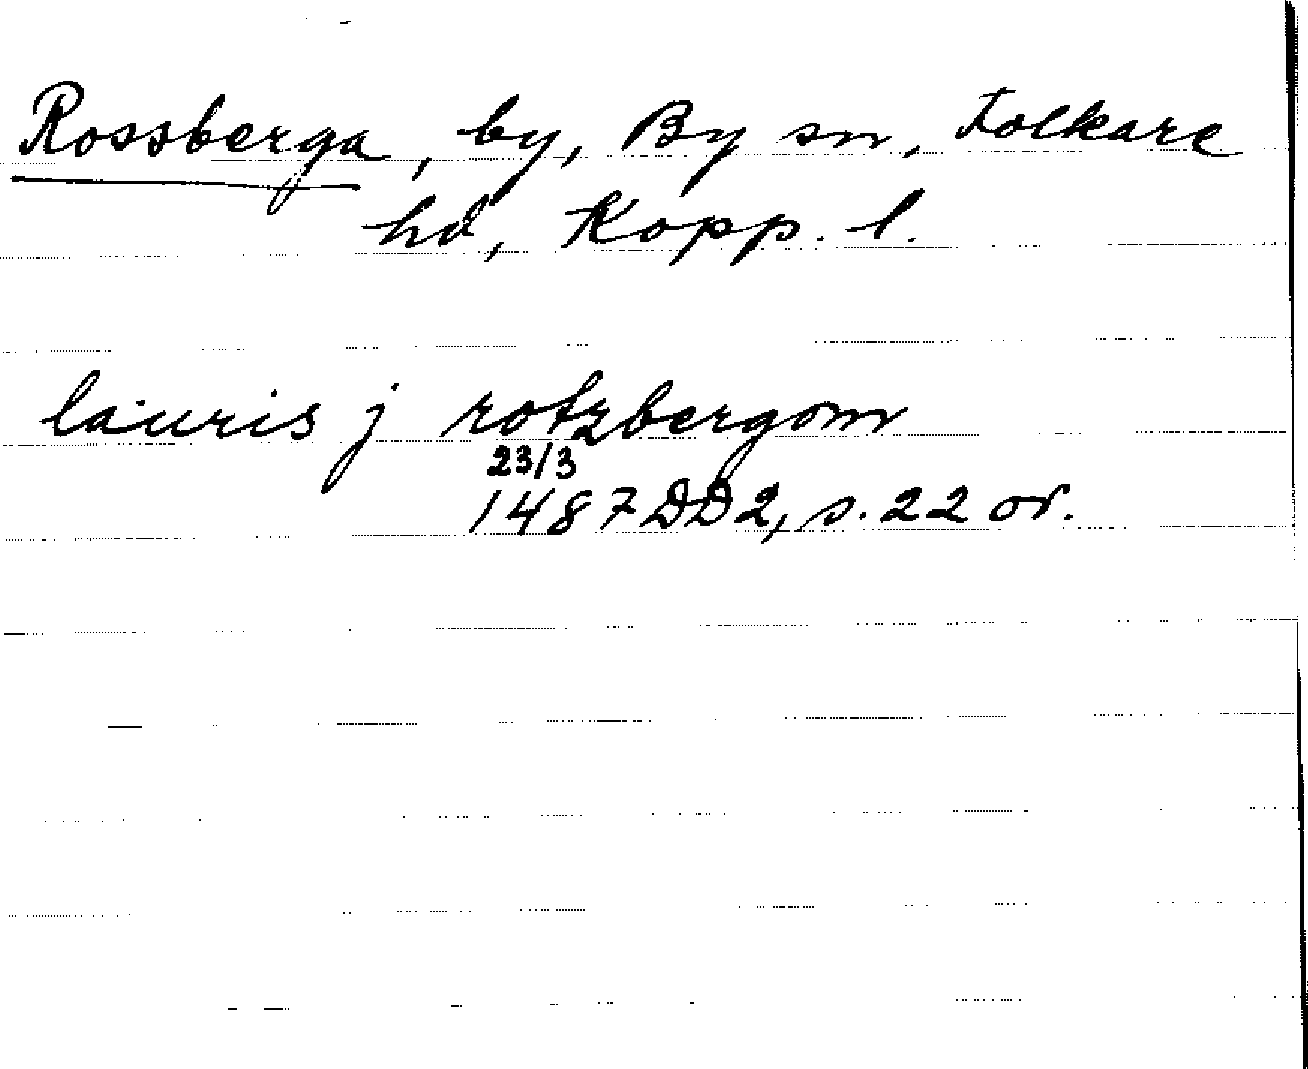 Rossberga, by, By sn, Folkare
hd, Kopp. l.
lauris j rotzbergom
23/3
1487 DD2, s. 22 or.